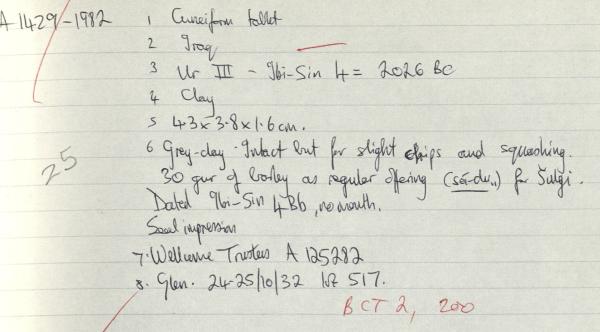 A 1429-1982
1 Cuneiform tablet
2 Iraq
3 Ur III - Ibi-Sin 4 = 2026 BC
4 Clay
5 4.3 x 3.8 x 1.6 cm.
6 Grey-clay. Intact but for slight chips and squashing.
30 gur of barley as regular offering (sá-du₁₁) for Šulgi.
Dated Ibi-Sin 4Bb, no month.
Seal impression
25
7. Wellcome Trustees A 125282
8. Glen. 24-25/10/32 lot 517.
BCT 2, 200